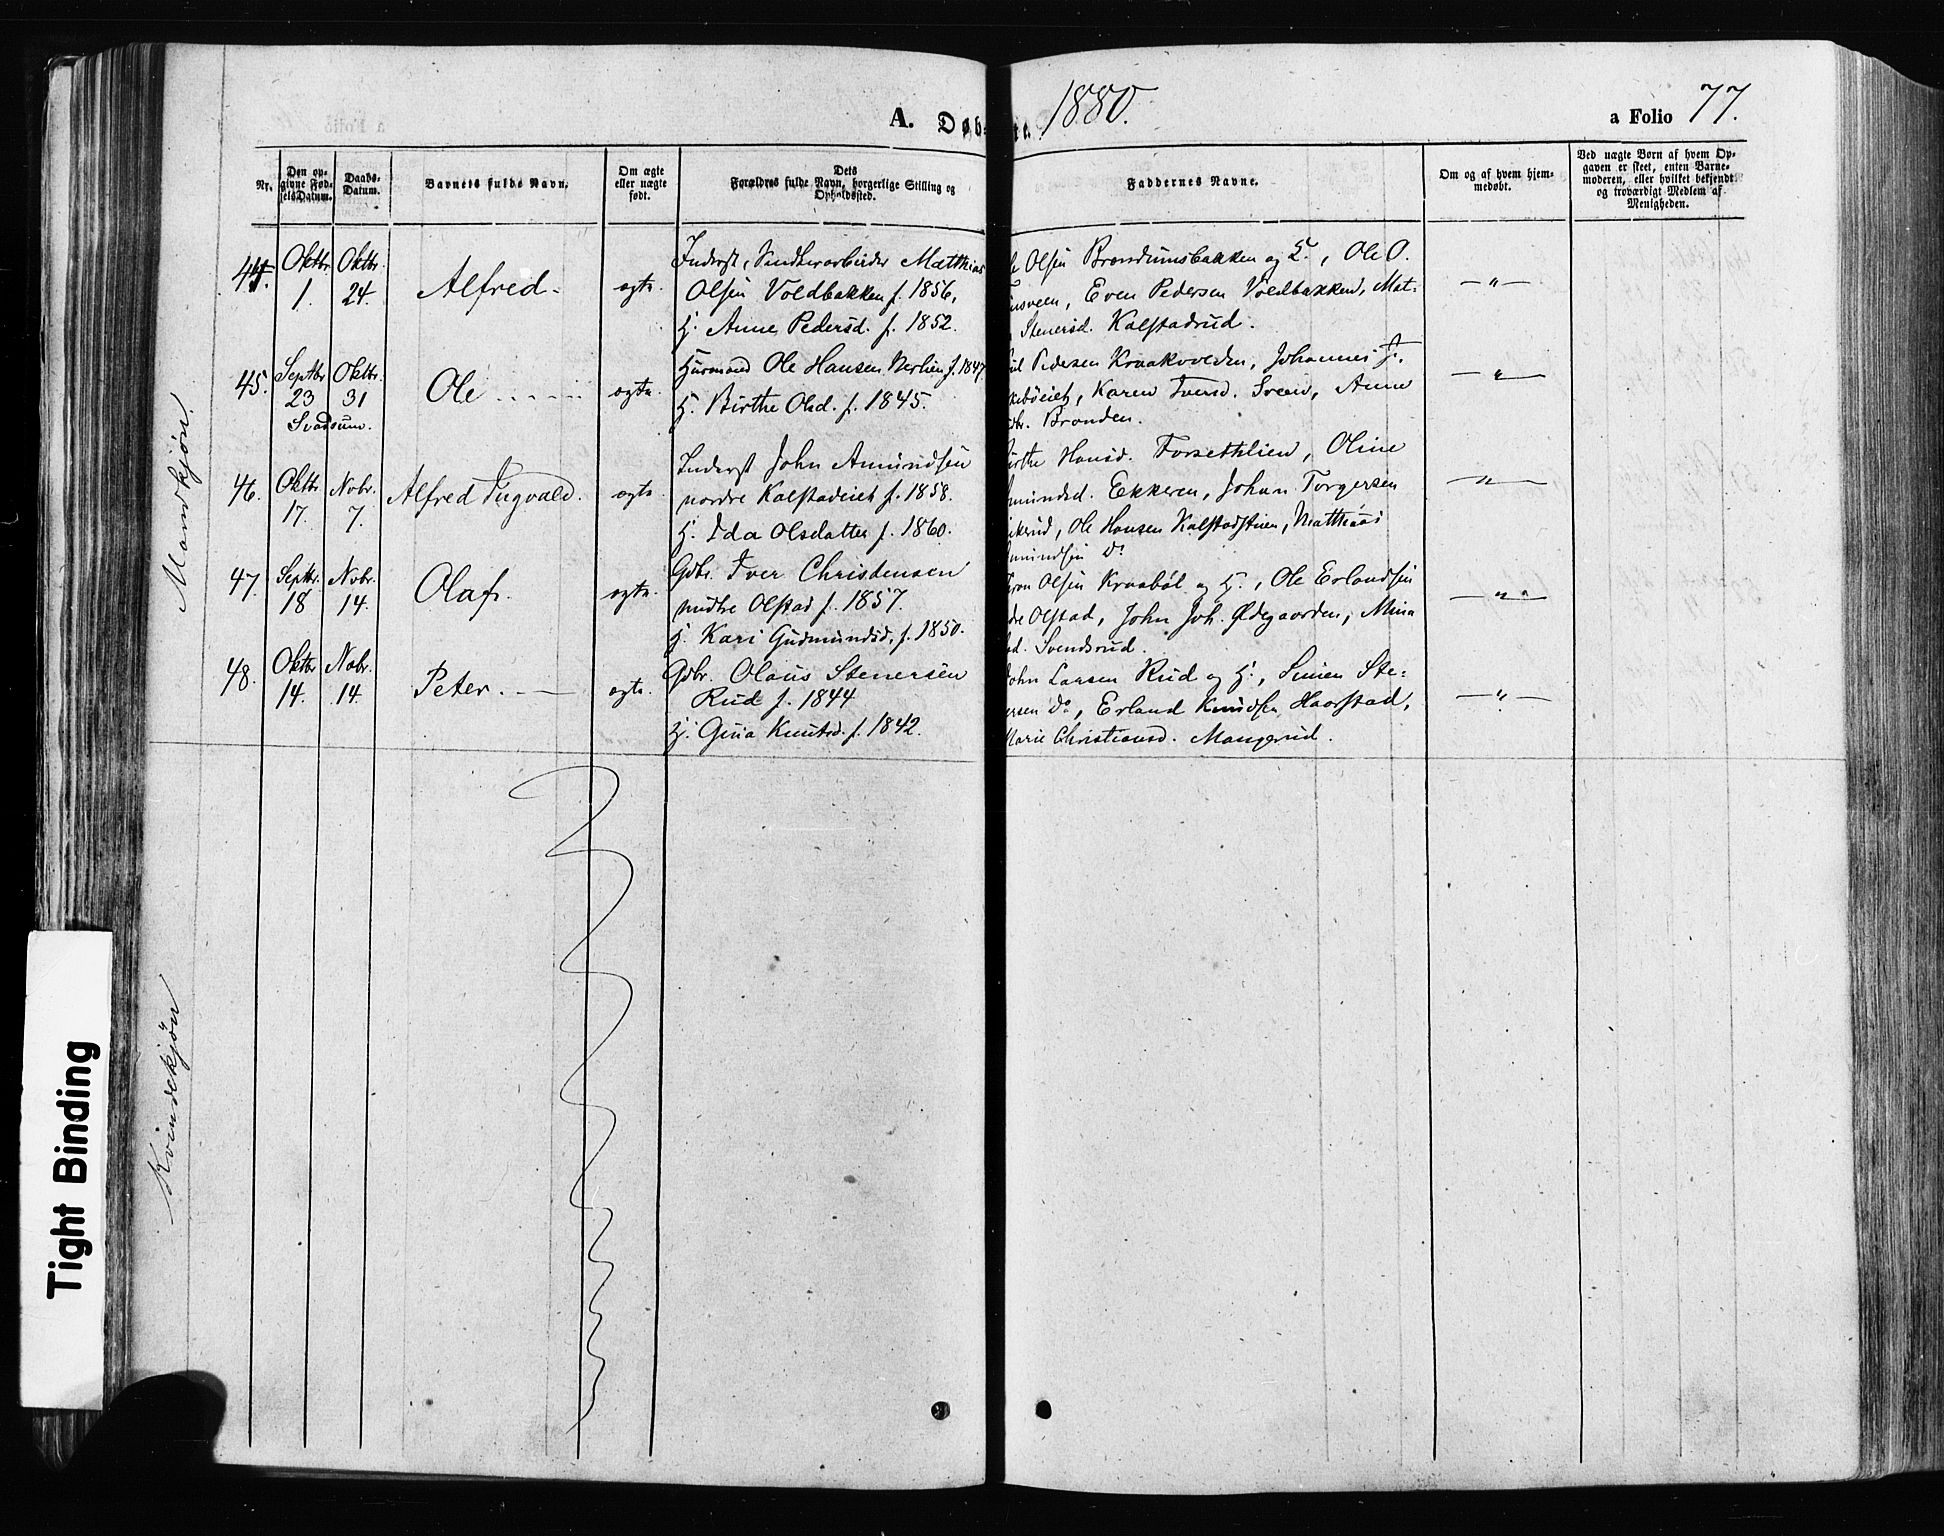 A. Døb 1880. a Folio 77.
Nr.
Den opgivne Fødsels Datum.
Daabs-Datum.
Barnets fulde Navn.
Om ægte eller uægte født.
Dets Forældres fulde Navn, borgerlige Stilling og Opholdssted.
Faddernes Navne.
Om og af hvem hjemmedøbt.
Ved uægte Børn af hvem Opgaven er skeet, enten Barnemoderen, eller hvilket bekjendt og troværdigt Medlem af Menigheden.
Mandkjøn.
44. Oktbr. 1. Oktbr. 24. Alfred. ægte. Inderst, Matthias
Olsen Voldbakken f. 1856,
H. Anne Pedersd. f. 1852.
Olsen Brændumsbakken og H., Ole O.
Even Pedersen Voldbakken, Mat-
Stenersd. Kalstadrud.
— " —
45. Septbr. 23 Oktbr. 31 Svadsum. Ole ægte. Huusmand Ole Hansen Nerlien f. 1847
H. Birthe Olsd. f. 1845.
Pedersen Kraakvolden, Johannes J.
Karen Iversd. Sveen, Anne
Brænden.
— " —
46. Oktbr. 17. Novbr. 7. Alfred Tugvald. ægte. Inderst John Amundsen
nordre Kalstadeiet f. 1858.
H. Ida Olsdatter f. 1860.
Hansd. Forsethlien, Oline
Ekkeren, Johan Torgersen
Ole Hansen Kalstadstuen, Matthias
Do
— " —
47. Septbr. 18 Novbr. 14. Olaf. ægte. Gdbr. Iver Christensen
midtre Olstad f. 1857.
H. Kari Gudmundsd. f. 1850.
Olsen Kraabøl og H., Ole Erlandsen
Olstad, John Joh. Ødegaarden, Mina
Svendsrud.
— " —
48. Oktbr. 14. Novbr. 14. Peter. ægte. Gdbr. Olaus Stenersen
Rud f. 1844
H. Gina Knutsd. f. 1842.
John Larsen Rud og H., Simen Ste-
Do, Erland Knudsen Haarstad,
Marie Christiansd. Mangerud.
— " —
Kvindekjøn
Tight Binding